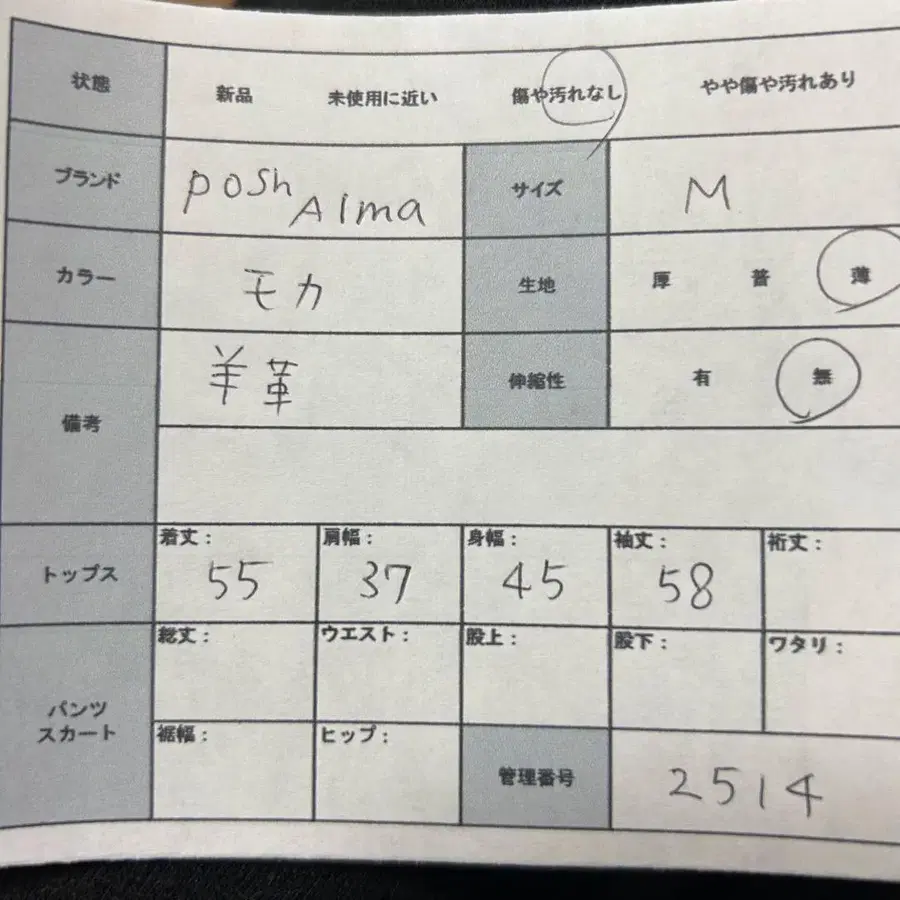 状態 新品 未使用に近い 傷や汚れなし やや傷や汚れあり
ブランド posh Alma サイズ M
カラー モカ 生地 厚 普 薄
備考 羊革 伸縮性 有 無
トップス 着丈: 55 肩幅: 37 身幅: 45 袖丈: 58 裄丈:
パンツ スカート 総丈: ウエスト: 股上: 股下: ワタリ:
裾幅: ヒップ: 管理番号 2514